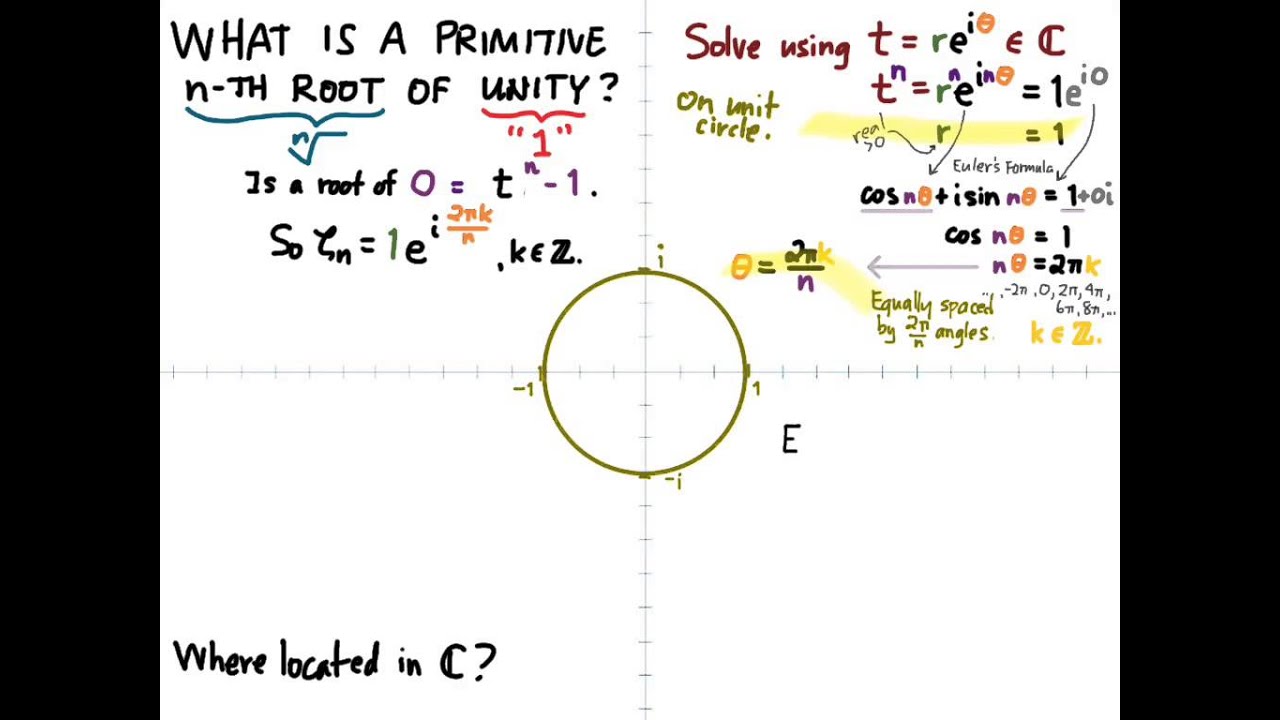 WHAT IS A PRIMITIVE
n-TH ROOT OF UNITY?
n√ "1"
Is a root of 0 = tⁿ - 1.
So ζₙ = 1e^(i 2πk/n) , k ∈ ℤ.
Solve using t = re^(iθ) ∈ ℂ
tⁿ = rⁿe^(inθ) = 1e^(i0)
On unit
circle.
real
>0
r = 1
Euler's Formula
cos nθ + i sin nθ = 1+0i
cos nθ = 1
nθ = 2πk
..., -2π, 0, 2π, 4π,
6π, 8π, ...
k ∈ ℤ.
θ = 2πk/n
Equally spaced
by 2π/n angles.
i
-1
1
-i
E
Where located in ℂ?